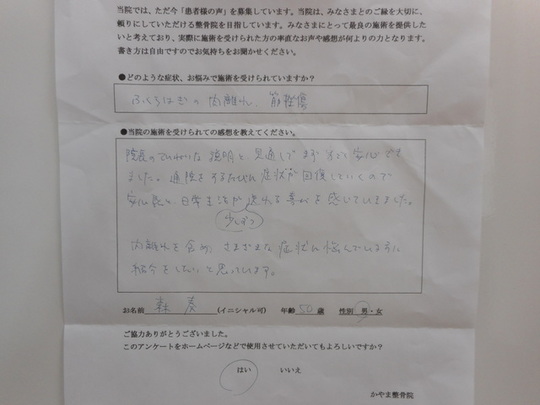 当院では、ただ今「患者様の声」を募集しています。当院は、みなさまとのご縁を大切に、
頼りにしていただける整骨院を目指しています。みなさまにとって最良の施術を提供した
いと考えており、実際に施術を受けられた方の率直なお声や感想が何よりの力となります。
書き方は自由ですのでお気持ちをお聞かせください。
●どのような症状、お悩みで施術を受けられていますか?
ふくらはぎの肉離れ、筋挫傷
●当院の施術を受けられての感想を教えてください。
院長のていねいな説明と見通しでまず安心でき
ました。通院をするたびに症状が回復していくので
安心感と日常生活が送れる喜びを感じていきました。
少しずつ
肉離れを含め、さまざまな症状に悩んでいる方に
紹介をしたいと思っています。
お名前 森 (イニシャル可) 年齢 50 歳 性別 男・女
ご協力ありがとうございました。
このアンケートをホームページなどで使用させていただいてもよろしいですか?
はい いいえ
かやま整骨院